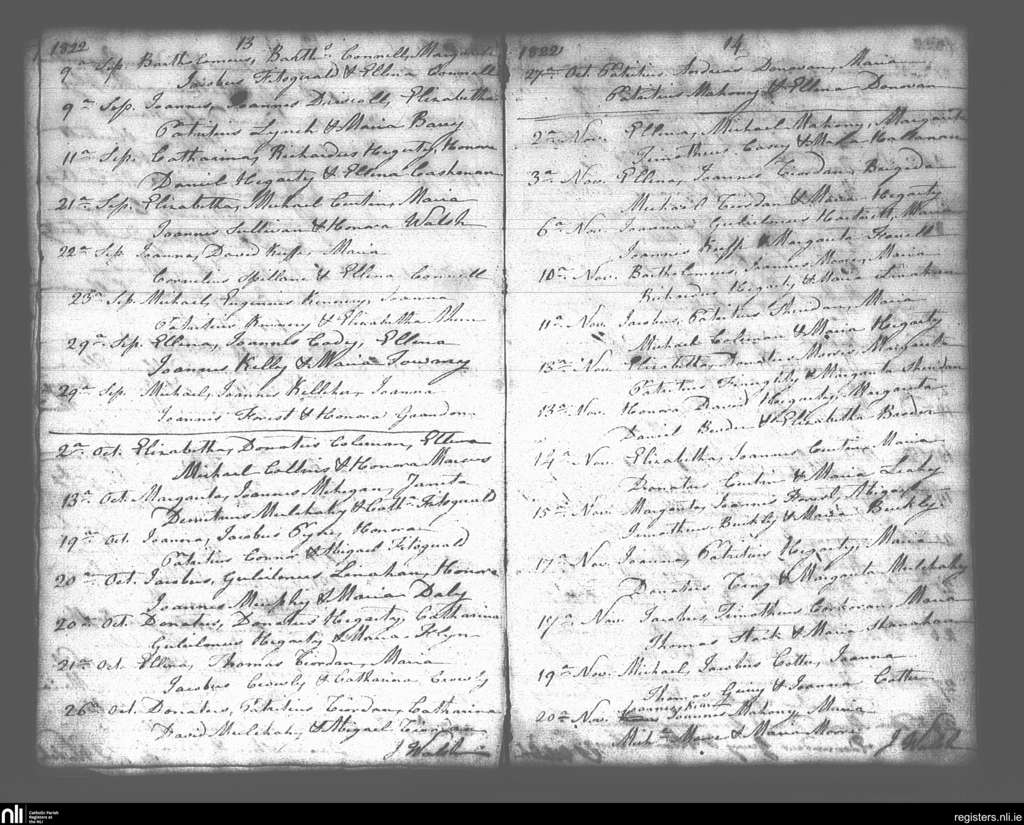 1822 13
9a Sep. Bartholomeus, Bartho. Connell, Margarita
Jacobus Fitzgerald & Ellena Connell
9a Sep. Joannes, Joannes Driscoll, Elizabetha
Patritius Lynch & Maria Barry
11a Sep. Catharina, Richardus Hegarty, Honora
Daniel Hegarty & Ellena Cashman
21a Sep. Elizabetha, Michael Curtin, Maria
Joannes Sullivan & Honora Walsh
22a Sep. Joanna, David Keeffe, Maria
Cornelius Spillane & Ellena Connell
23a Sep. Michael, Eugenius Kenney, Joanna
Patritius Kenney & Elizabetha
29a Sep. Ellena, Joannes Cody, Ellena
Joannes Kelly & Maria Towney
29a Sep. Michael, Joannes Kelliher, Joanna
Joannes Forest & Honora
2a Oct. Elizabetha, Donatus Coleman, Ellena
Michael Collins & Honora Marcus
13a Oct. Margarita, Joannes Mehegan,
Demetrius Mulchahy & Cath. Fitzgerald
19a Oct. Joanna, Jacobus Pyne, Honora
Patritius Connor & Abigael Fitzgerald
20a Oct. Jacobus, Gulielmus Lenahan, Honora
Joannes Murphy & Maria Daly
20a Oct. Donatus, Donatus Hegarty, Catharina
Gulielmus Hegarty & Maria Flyn
21a Oct. Ellena, Thomas Riordan, Maria
Jacobus Crowly & Catharina Crowly
26a Oct. Donatus, Patritius Riordan, Catharina
David Mulchahy, & Abigael Riordan
J Walsh
1822 14
27a Oct. Patritius, Andreas Donovan, Maria
Patritius Mahony & Ellena Donovan
2a Nov. Ellena, Michael Mahony, Margarita
Timotheus Casey & Maria
3a Nov. Ellena, Joannes Riordan, Brigida
Michael Riordan & Maria Hegarty
6a Nov. Joanna, Gulielmus Hartnett, Maria
Joannes Keeffe & Margarita
10a Nov. Bartholomeus, Joannes Moore, Maria
Richardus Hegarty & Maria
11a Nov. Jacobus, Patritius Sheedan, Maria
Michael Coleman & Maria Hegarty
13a Nov. Elizabetha, Donatus Moore, Margarita
Patritius & Margarita Sheridan
13a Nov. Honora, Daniel Hegarty, Margarita
Daniel & Elizabetha
14a Nov. Elizabetha, Joannes Curtin, Maria
Donatus Curtin & Maria Leahy
15a Nov. Margarita, Joannes Dowd, Abigael
Timotheus Buckly & Maria Buckly
17a Nov. Joanna, Patritius Hegarty, Maria
Donatus & Margarita Mulchahy
17a Nov. Jacobus, Timotheus Corkoran, Maria
Thomas & Maria Shanahan
19a Nov. Michael, Jacobus Cotter, Joanna
Thomas & Joanna Cotter
20a Nov. Joannes Mahony, Maria
Mich. Moore & Maria Moore
J Walsh
nli
Catholic Parish
Registers at
the NLI
registers.nli.ie